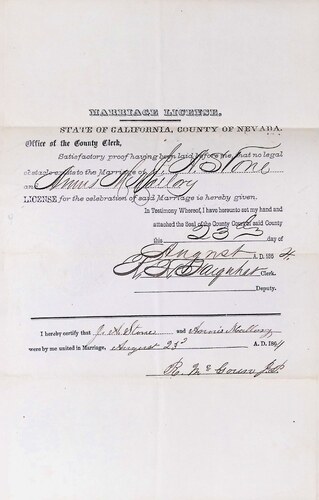 MARRIAGE LICENSE.
STATE OF CALIFORNIA, COUNTY OF NEVADA.
Office of the County Clerk,
Satisfactory proof having been laid before me, that no legal
obstacle exists to the Marriage of J. A. Stone
and
LICENSE for the celebration of said Marriage is hereby given.
In Testimony Whereof, I have hereunto set my hand and
attached the Seal of the County Court of said County
this 23d day of
August A. D. 1864
Clerk.
Deputy.
I hereby certify that J. A. Stone and
were by me united in Marriage, August 23d A. D. 1864
R. McGowan J.P.